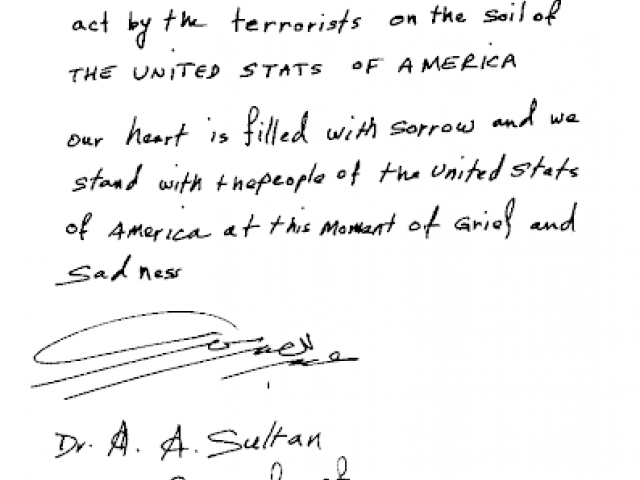 act by the terrorists on the soil of
THE UNITED STATS OF AMERICA
our heart is filled with sorrow and we
stand with thepeople of the united stats
of AMERICA at this Moment of Grief and
Sadness
Dr. A. A. Sultan